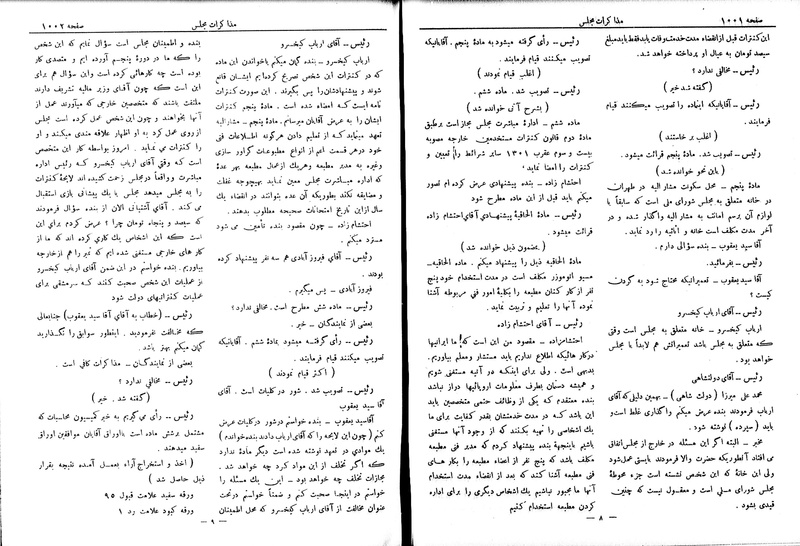 صفحه ۱۰۰۱
مذاکرات مجلس
این کنترات قبل از انقضاء مدت خدمت وفات یابد فقط باید مبلغ
سیصد تومان به عیال او پرداخته خواهد شد.
رئیس – مخالفی ندارد؟
(گفته شد خیر)
رئیس – آقایانیکه ابقاده را تصویب میکنند قیام
فرمایند.
(اغلب برخاستند)
رئیس – تصویب شد. مادهٔ پنجم قرائت میشود.
(باین نحو خوانده شد)
مادهٔ پنجم – محل سکونت مشار الیه در طهران
در خانه متعلق به مجلس شورای ملی است که سابقاً با
لوازم آن برسم امانت به مشار الیه واگذار شده و در
آخر مدت مکلف است خانه و اثاثیه را رد نماید.
آقا سید یعقوب – بنده سؤالی دارم.
رئیس – بفرمائید.
آقا سید یعقوب – تعمیراتیکه محتاج شود به گردن
کیست؟
رئیس – آقای ارباب کیخسرو
ارباب کیخسرو – خانه متعلق به مجلس است وقتی
که متعلق به مجلس باشد تعمیراتش هم لابد با مجلس
خواهد بود.
رئیس – آقای دولتشاهی
محمد علی میرزا (دولت شاهی) – بهمین دلیلی که آقای
ارباب فرمودند بنده عرض میکنم واگذاری غلط است و
باید (سپرده) نوشته شود.
مخبر – البته اگر این مسئله در خارج از مجلس اتفاق
می افتاد آنطوریکه حضرت والا فرمودند بایستی عمل شود
ولی این خانهٔ که این شخص نشسته است جزء محوطهٔ
مجلس شورای ملی است و معقول نیست که چنین
قیدی بشود.
رئیس – رأی گرفته میشود به مادهٔ پنجم. آقایانیکه
تصویب میکنند قیام فرمایند.
(اغلب قیام نمودند)
رئیس – تصویب شد. ماده ششم.
(بشرح آتی خوانده شد)
ماده ششم – ادارهٔ مباشرت مجلس مجاز است بر طبق
مادهٔ دوم قانون کنترات مستخدمین خارجه مصوبه
بیست و سوم عقرب ۱۳۰۱ سایر شرائط را تعیین و
کنترات را امضا نماید.
احتشام زاده – بنده پیشنهادی عرض کرده ام تصور
میکنم باید قبل از این ماده مطرح شود
رئیس – مادهٔ الحاقیهٔ پیشنهادی آقای احتشام زاده
قرائت میشود.
(بمضمون ذیل خوانده شد)
مادهٔ الحاقیه ذیل را پیشنهاد میکنم. ماده الحاقیه –
مسیو اتوموزر مکلف است در مدت استخدام خود پنج
نفر از کارکنان مطبعه را بکلیهٔ امور فنی مربوطه آشنا
نموده آنها را تعلیم و تربیت نماید.
رئیس – آقای احتشام زاده
احتشام زاده – مقصود من این است که ما ایرانیها
در کارهائیکه اطلاع نداریم باید مستشار و معلم بیاوریم.
بدیهی است. ولی برای اینکه در آتیه مستغنی شویم
و همیشه دستمان بطرف معلومات اروپائیها دراز نباشد
بنده معتقدم که یکی از وظائف حتمی متخصصین باید
این باشد که در مدت خدمتشان بقدر کفایت برای ما
یک اشخاصی را تهیه بکنند که از وجود آنها مستغنی
باشیم باینجهة بنده پیشنهاد کردم که مدیر فنی مطبعه
مکلف باشد که پنج نفر از اعضاء مطبعه را بکارهای
فنی مطبعه آشنا کند که بعد از انقضاء مدت استخدام
آنها ما مجبور نباشیم یک اشخاص دیگری را برای اداره
کردن مطبعه استخدام کنیم
– ۸ –
مذاکرات مجلس
صفحه ۱۰۰۲
رئیس – آقای ارباب کیخسرو
ارباب کیخسرو – بنده گمان میکنم باخواندن این ماده
که در کنترات این شخص تصریح کرده ایم ایشان قانع
شوند و پیشنهادشان را پس بگیرند. این صورت کنترات
نامه ایست که امضاء شده است. مادهٔ پنجم کنترات
ایشان را به عرض آقایان میرسانم. مادهٔ پنجم – مشار الیه
تعهد مینماید که از تعلیم دادن هرگونه اطلاعات فنی
خود در هر قسمت اعم از انواع مطبوعات گراور سازی
وغیره به مدیر مطبعه وهریک از عمال مطبعه بهر عدهٔ
که ادارهٔ مباشرت مجلس معین نماید بهیچوجه غفلت
و مضایقه نکند بطوریکه آن عده بتوانند در انقضاء یک
سال از این تاریخ امتحانات صحیحه مطلوب بدهند.
احتشام زاده – چون مقصود بنده تأمین می شود
مسترد میکنم.
رئیس – آقای فیروز آبادی هم سه نفر پیشنهاد کرده
بودند.
فیروز آبادی – پس میگیرم.
رئیس – ماده شش مطرح است. مخالفی ندارد؟
بعضی از نمایندگان – خیر.
رئیس – رأی گرفته میشود بمادهٔ ششم. آقایانیکه
تصویب میکنند قیام فرمایند.
(اکثر قیام نمودند)
رئیس – تصویب شد. شور در کلیات است. آقای
آقا سید یعقوب
آقا سید یعقوب – بنده خواستم در شور در کلیات عرض
کنم (چون این لایحه را که آقای ارباب دادند بنده خواندم)
یک موادی در تعهد نوشته شده است دیگر مادهٔ ندارد
که اگر تخلف از این مواد کرد چه خواهد شد.
مجازات تخلف چه خواهد بود – این یک مسئله را
خواستم در اینجا صحبت کنم و ضمناً خواستم در تحت
عنوان مخالفت از آقای ارباب کیخسرو که محل اطمینان
بنده و اطمینان مجلس است سؤال نمایم که این شخص
را که ما در دورهٔ پنجم آورده ایم و متصدی کار
بوده است چه کارهائی کرده است و این سؤال هم برای
این است که چون آقای وزیر مالیه تشریف دارند
ملتفت باشند که متخصصین خارجی که میآورند عمل از
آنها بخواهند و چون این شخص عمل کرده است مجلس
از روی عمل کرد به او اظهار علاقه مندی میکند و او
را کنترات می نماید. امروز بواسطه کار این متخصص
است که وقتی آقای ارباب کیخسرو که رئیس اداره
مباشرت و واقعاً در مجلس زحمت کشیده اند لایحهٔ کنترات
را به مجلس میدهد مجلس با یک پیشانی بازی استقبال
می کند. آقای آشتیانی الان از بنده سؤال فرمودند
که سیصد و پنجاه تومان چرا؟ عرض کردم برای این
که این اشخاص یک کاری کرده اند که ما از
کارهای خارجی مستغنی شده ایم که تمبر را هم از خارجه
بیاوریم. بنده خواستم در این ضمن آقای ارباب کیخسرو
از عملیات این شخص صحبت کنند که سرمشقی برای
عملیات کنتراتهای دولت شود
رئیس – (خطاب به آقای آقا سید یعقوب) جنابعالی
که مخالفت نفرمودید. اینطور سوابق را نگذارید
گمان میکنم بهتر باشد.
بعضی از نمایندگان – مذاکرات کافی است.
رئیس – مخالفی ندارد؟
(گفته شد. خیر)
رئیس – رأی می گیریم به خبر کمیسیون محاسبات که
مشتمل برشش ماده است بااوراق آقایان موافقین اوراق
سفید میدهند.
(اخذ و استخراج آراء بعمل آمده نتیجه بقرار
ذیل حاصل شد)
ورقه سفید علامت قبول ۹۵
ورقه کبود علامت رد ۱
– ۹ –